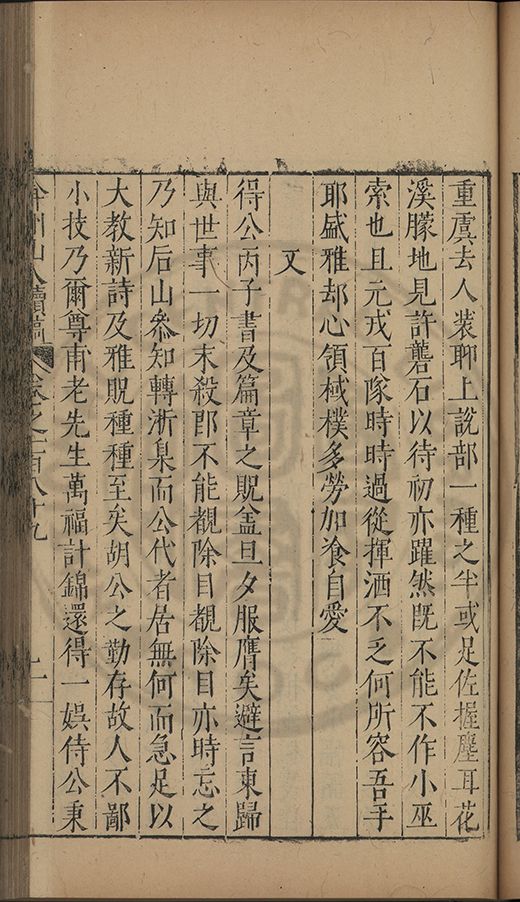 重虞去人装聊上說部一種之半或足佐握麈耳花
溪朦地見許礱石以待初亦躍然旣不能不作小巫
索也且元戎百隊時時過從揮洒不乏何所容吾手
耶盛雅却心領棫樸多勞加飡自愛
又
得公丙子書及篇章之貺盆旦夕服膺矣避言東歸
與世事一切末殺郎不能覩除目覩除目亦時忘之
乃知后山叅知轉淅臬而公代者居無何而急足以
大教新詩及雅貺種種至矣胡公之勤存故人不鄙
小技乃爾尊甫老先生萬福計錦還得一娯侍公秉
弇州山人續稿 卷之一百八十九